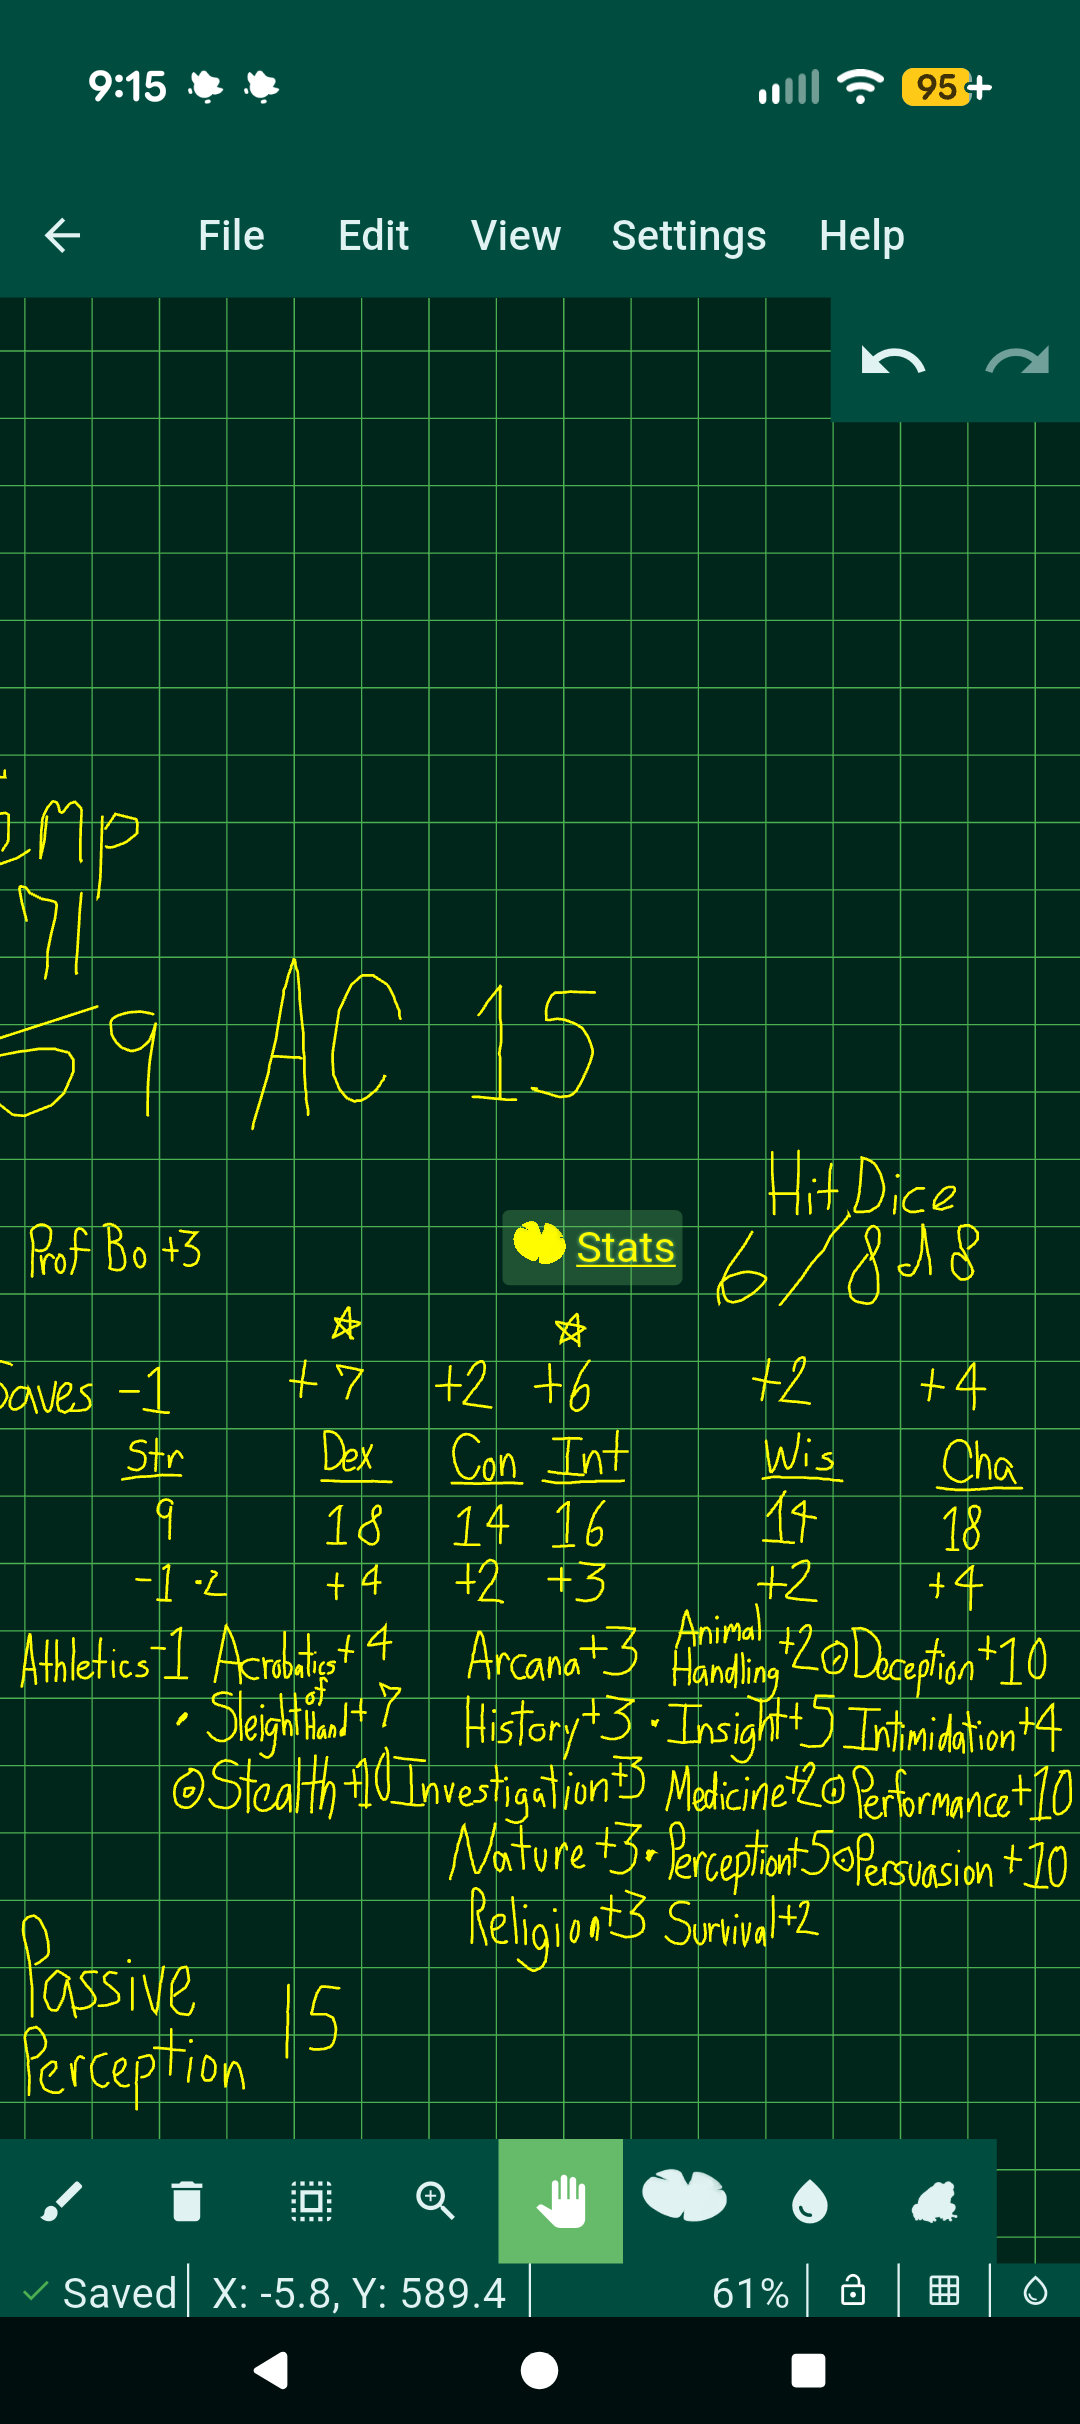 9:15 95+
File Edit View Settings Help
71
59 AC 15
Hit Dice
Prof Bo +3 Stats 6/8d8
Saves -1 +7 +2 +6 +2 +4
Str Dex Con Int Wis Cha
9 18 14 16 14 18
-1 -2 +4 +2 +3 +2 +4
Athletics -1 Acrobatics +4 Arcana +3 Animal Handling +2 Deception +10
Sleight of Hand +7 History +3 Insight +5 Intimidation +4
Stealth +10 Investigation +3 Medicine +2 Performance +10
Nature +3 Perception +5 Persuasion +10
Religion +3 Survival +2
Passive
Perception 15
Saved X: -5.8, Y: 589.4 61%